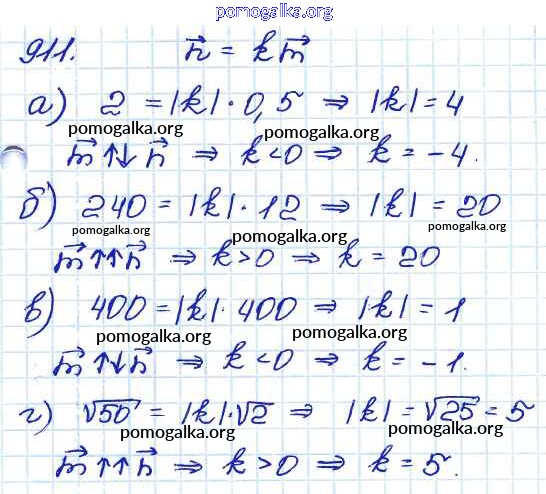 pomogalka.org
911. n⃗ = k m⃗
а) 2 = |k| · 0,5 ⇒ |k| = 4
pomogalka.org pomogalka.org
m⃗ ↑↓ n⃗ ⇒ k < 0 ⇒ k = -4.
б) 240 = |k| · 12 ⇒ |k| = 20
pomogalka.org pomogalka.org
m⃗ ↑↑ n⃗ ⇒ k > 0 ⇒ k = 20
в) 400 = |k| · 400 ⇒ |k| = 1
pomogalka.org pomogalka.org
m⃗ ↑↓ n⃗ ⇒ k < 0 ⇒ k = -1.
г) √50 = |k| · √2 ⇒ |k| = √25 = 5
pomogalka.org pomogalka.org
m⃗ ↑↑ n⃗ ⇒ k > 0 ⇒ k = 5.
pomogalka.org pomogalka.org